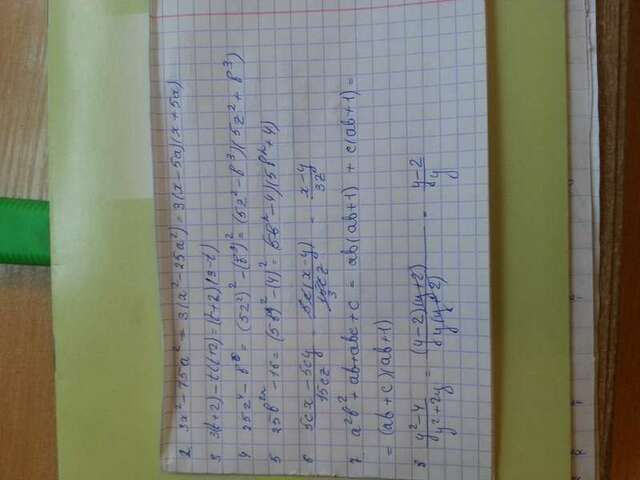 2 3x² - 75a² = 3(x² - 25a²) = 3(x - 5a)(x + 5a)
3 3(t+2) - t(t+2) = (t+2)(3-t)
4 25z⁴ - b⁶ = (5z²)² - (b³)² = (5z² - b³)(5z² + b³)
5 - 16 = - (4)² =
6 5cx - 5cy / 15cz = 5c(x-y) / 15cz = x-y / 3z
3
7 a²b² + ab + abc + c = ab(ab+1) + c(ab+1) =
= (ab + c)(ab+1)
8 y² - 4 / y² + 2y = (y-2)(y+2) / y(y+2) = y-2 / y